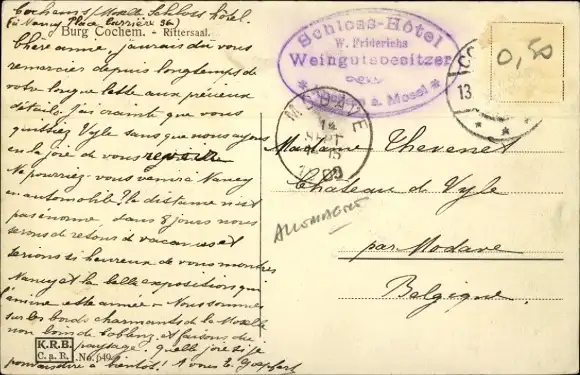 Cochem s/ Moselle Schloss hôtel.
(à Nancy Place Carrière 36)
Burg Cochem. - Rittersaal.
Chère amie, j'aurais dû vous
remercier depuis longtemps de
votre longue lettre aux précieux
détails. J'ai craint que vous
quittiez Vyle sans que nous ayons
eu la joie de vous revoir
Ne pourriez-vous venir à Nancy
en automobile? la distance n'est
pas énorme. dans 8 jours nous
serons de retour de vacances et
serions si heureux de vous montrer
Nancy et la belle exposition qui
l'anime cette année - Nous sommes
sur les bords charmants de la Moselle
non loin de Coblenz et faisons du
paysage. Quelle joie si je
pouvais dire à bientôt! A vous E. Goepfart
K.R.B.
C. a. R.
No. 649
Schloss-Hôtel
W. Friderichs
Weingutsbesitzer
a. Mosel
MODAVE
14
SEPT
15
13
0,50
Madame Thevenet
Château de Vyle
par Modave
Belgique
ALLEMAGNE